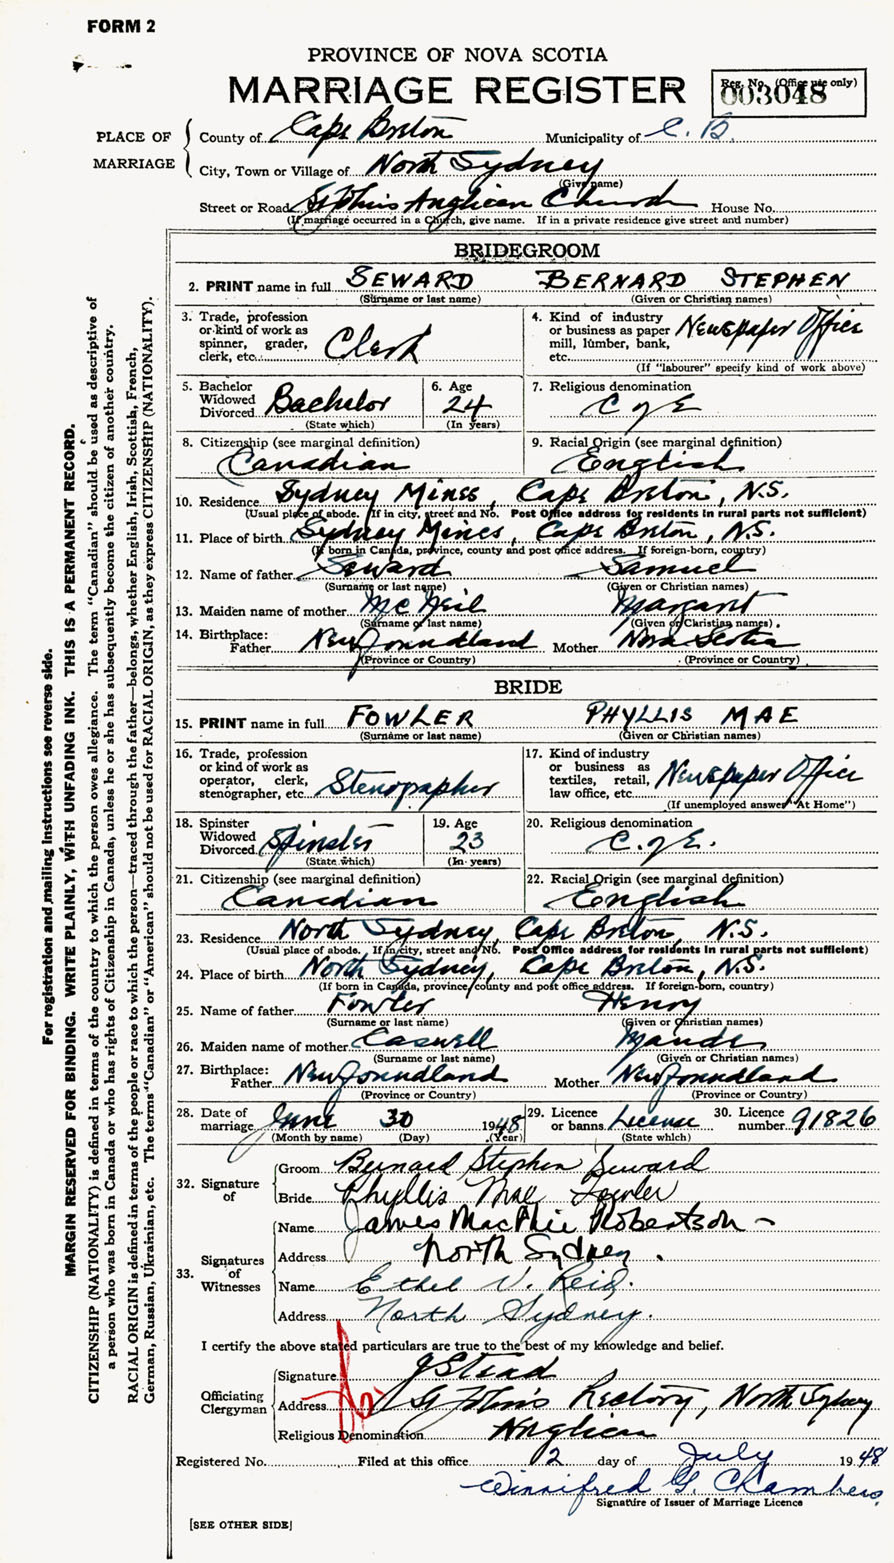 FORM 2
PROVINCE OF NOVA SCOTIA
MARRIAGE REGISTER
Reg. No. (Office use only)
003048
PLACE OF MARRIAGE
County of Cape Breton Municipality of C. B.
City, Town or Village of North Sydney
(Give name)
Street or Road St John's Anglican Church House No.
(If marriage occurred in a Church, give name. If in a private residence give street and number)
BRIDEGROOM
2. PRINT name in full SEWARD BERNARD STEPHEN
(Surname or last name) (Given or Christian names)
3. Trade, profession or kind of work as spinner, grader, clerk, etc. Clerk
4. Kind of industry or business as paper mill, lumber, bank, etc. Newspaper Office
(If "labourer" specify kind of work above)
5. Bachelor Widowed Divorced Bachelor
(State which)
6. Age 24
(In years)
7. Religious denomination
C of E
8. Citizenship (see marginal definition)
Canadian
9. Racial Origin (see marginal definition)
English
10. Residence Sydney Mines, Cape Breton, N.S.
(Usual place of abode. If in city, street and No. Post Office address for residents in rural parts not sufficient)
11. Place of birth Sydney Mines, Cape Breton, N.S.
(If born in Canada, province, county and post office address. If foreign-born, country)
12. Name of father Seward Samuel
(Surname or last name) (Given or Christian names)
13. Maiden name of mother McNeil Margaret
(Surname or last name) (Given or Christian names)
14. Birthplace: Father Newfoundland Mother Nova Scotia
(Province or Country) (Province or Country)
BRIDE
15. PRINT name in full FOWLER PHYLLIS MAE
(Surname or last name) (Given or Christian names)
16. Trade, profession or kind of work as operator, clerk, stenographer, etc. Stenographer
17. Kind of industry or business as textiles, retail, law office, etc. Newspaper Office
(If unemployed answer "At Home")
18. Spinster Widowed Divorced Spinster
(State which)
19. Age 23
(In years)
20. Religious denomination
C. of E.
21. Citizenship (see marginal definition)
Canadian
22. Racial Origin (see marginal definition)
English
23. Residence North Sydney, Cape Breton, N.S.
(Usual place of abode. If in city, street and No. Post Office address for residents in rural parts not sufficient)
24. Place of birth North Sydney, Cape Breton, N.S.
(If born in Canada, province, county and post office address. If foreign-born, country)
25. Name of father Fowler Henry
(Surname or last name) (Given or Christian names)
26. Maiden name of mother Caswell Maude
(Surname or last name) (Given or Christian names)
27. Birthplace: Father Newfoundland Mother Newfoundland
(Province or Country) (Province or Country)
28. Date of marriage June 30 1948
(Month by name) (Day) (Year)
29. Licence or banns License
(State which)
30. Licence number 91826
32. Signature of
Groom Bernard Stephen Seward
Bride Phyllis Mae Fowler
33. Signatures of Witnesses
Name James MacPhie Robertson -
Address North Sydney.
Name Ethel V. Reid.
Address North Sydney.
I certify the above stated particulars are true to the best of my knowledge and belief.
Officiating Clergyman
Signature J Stead
Address St John's Rectory, North Sydney
Religious Denomination Anglican
Registered No. Filed at this office 2 day of July 1948
Winnifred G. Chambers
Signature of Issuer of Marriage Licence
[SEE OTHER SIDE]
For registration and mailing instructions see reverse side.
MARGIN RESERVED FOR BINDING. WRITE PLAINLY, WITH UNFADING INK. THIS IS A PERMANENT RECORD.
CITIZENSHIP (NATIONALITY) is defined in terms of the country to which the person owes allegiance. The term "Canadian" should be used as descriptive of
a person who was born in Canada or who has rights of Citizenship in Canada, unless he or she has subsequently become the citizen of another country.
RACIAL ORIGIN is defined in terms of the people or race to which the person—traced through the father—belongs, whether English, Irish, Scottish, French,
German, Russian, Ukrainian, etc. The terms "Canadian" or "American" should not be used for RACIAL ORIGIN, as they express CITIZENSHIP (NATIONALITY).